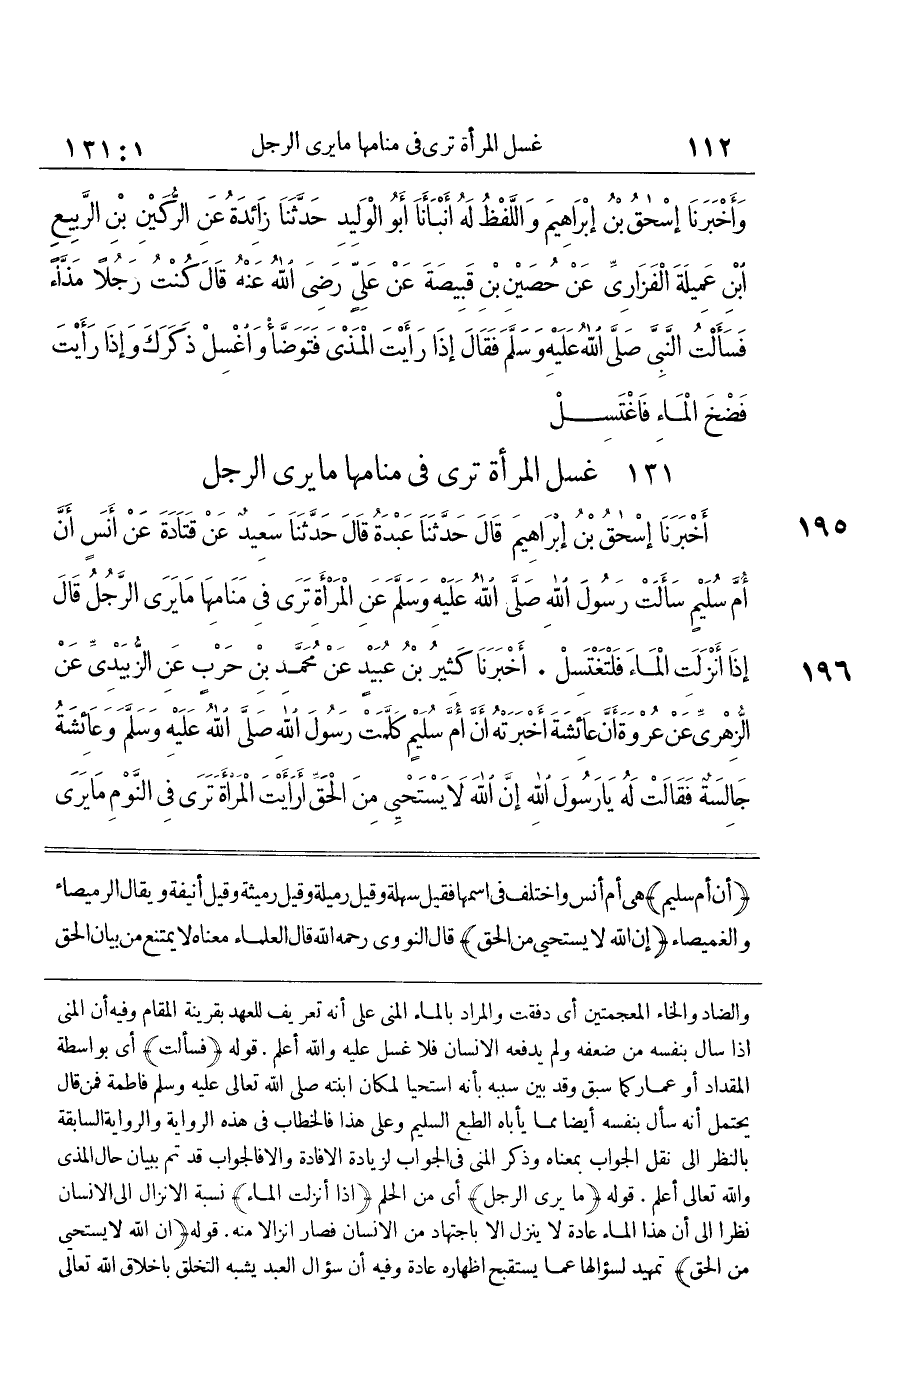 ١١٢ غسل المرأة ترى فى منامها مايرى الرجل ١ : ١٣١
وَأَخْبَرَنَا إِسْحٰقُ بْنُ إِبْرَاهِيمَ وَاللَّفْظُ لَهُ أَنْبَأَنَا أَبُو الْوَلِيدِ حَدَّثَنَا زَائِدَةُ عَنِ الرُّكَيْنِ بْنِ الرَّبِيعِ
ابْنِ عَمِيلَةَ الْفَزَارِىِّ عَنْ حُصَيْنِ بْنِ قَبِيصَةَ عَنْ عَلِيٍّ رَضِىَ اللهُ عَنْهُ قَالَ كُنْتُ رَجُلًا مَذَّاءً
فَسَأَلْتُ النَّبِىَّ صَلَّى اللهُ عَلَيْهِ وَسَلَّمَ فَقَالَ إِذَا رَأَيْتَ الْمَذْىَ فَتَوَضَّأْ وَاغْسِلْ ذَكَرَكَ وَإِذَا رَأَيْتَ
فَضْخَ الْمَاءِ فَاغْتَسِلْ
١٣١ غسل المرأة ترى فى منامها مايرى الرجل
أَخْبَرَنَا إِسْحٰقُ بْنُ إِبْرَاهِيمَ قَالَ حَدَّثَنَا عَبْدَةُ قَالَ حَدَّثَنَا سَعِيدٌ عَنْ قَتَادَةَ عَنْ أَنَسٍ أَنَّ ١٩٥
أُمَّ سُلَيْمٍ سَأَلَتْ رَسُولَ اللهِ صَلَّى اللهُ عَلَيْهِ وَسَلَّمَ عَنِ الْمَرْأَةِ تَرَى فِى مَنَامِهَا مَايَرَى الرَّجُلُ قَالَ
إِذَا أَنْزَلَتِ الْمَاءَ فَلْتَغْتَسِلْ . أَخْبَرَنَا كَثِيرُ بْنُ عُبَيْدٍ عَنْ مُحَمَّدِ بْنِ حَرْبٍ عَنِ الزُّبَيْدِىِّ عَنِ ١٩٦
الزُّهْرِىِّ عَنْ عُرْوَةَ أَنَّ عَائِشَةَ أَخْبَرَتْهُ أَنَّ أُمَّ سُلَيْمٍ كَلَّمَتْ رَسُولَ اللهِ صَلَّى اللهُ عَلَيْهِ وَسَلَّمَ وَعَائِشَةُ
جَالِسَةٌ فَقَالَتْ لَهُ يَارَسُولَ اللهِ إِنَّ اللهَ لَا يَسْتَحْيِي مِنَ الْحَقِّ أَرَأَيْتَ الْمَرْأَةَ تَرَى فِى النَّوْمِ مَايَرَى
﴿أن أم سليم﴾ هى أم أنس واختلف فى اسمها فقيل سهلة وقيل رميلة وقيل رميثة وقيل أنيفة ويقال الرميصاء
والغميصاء ﴿إن الله لا يستحيى من الحق﴾ قال النووى رحمه الله قال العلماء معناه لا يمتنع من بيان الحق
والضاد والخاء المعجمتين أى دفقت والمراد بالماء المنى على أنه تعريف للعهد بقرينة المقام وفيه أن المنى
اذا سال بنفسه من ضعفه ولم يدفعه الانسان فلا غسل عليه والله أعلم . قوله ﴿فسألت﴾ أى بواسطة
المقداد أو عمار كما سبق وقد بين سببه بأنه استحيا لمكان ابنته صلى الله تعالى عليه وسلم فاطمة فمن قال
يحتمل أنه سأل بنفسه أيضا مما يأباه الطبع السليم وعلى هذا فالخطاب فى هذه الرواية والرواية السابقة
بالنظر الى نقل الجواب بمعناه وذكر المنى فى الجواب لزيادة الافادة والافالجواب قد تم ببيان حال المذى
والله تعالى أعلم . قوله ﴿ما يرى الرجل﴾ أى من الحلم ﴿اذا أنزلت الماء﴾ نسبة الانزال الى الانسان
نظرا الى أن هذا الماء عادة لا ينزل الا باجتهاد من الانسان فصار انزالا منه . قوله ﴿ان الله لا يستحيى
من الحق﴾ تمهيد لسؤالها عما يستقبح اظهاره عادة وفيه أن سؤال العبد يشبه التخلق باخلاق الله تعالى